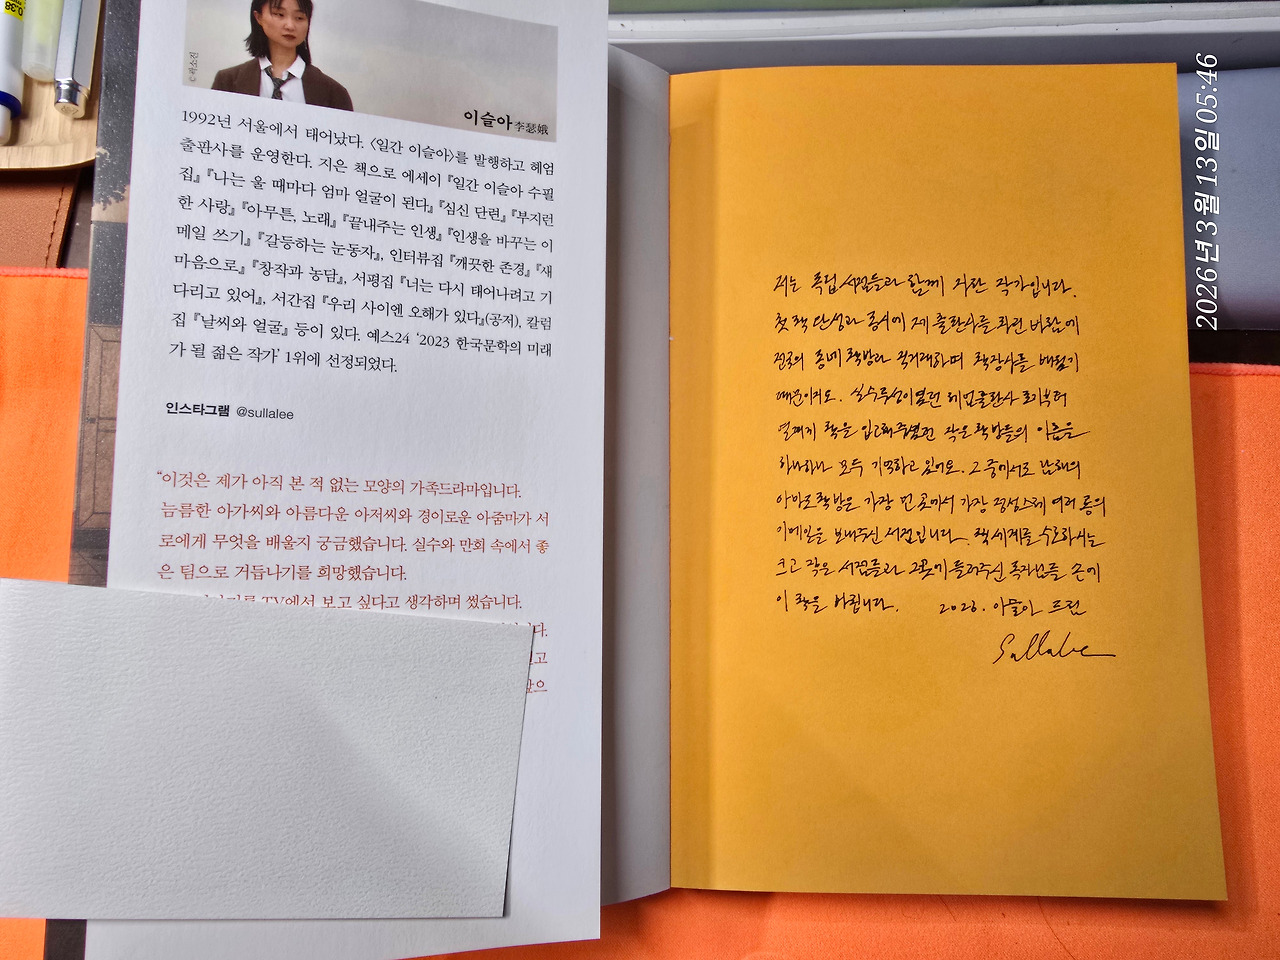 0.38
©곽소진
이슬아李瑟娥
1992년 서울에서 태어났다. 〈일간 이슬아〉를 발행하고 헤엄
출판사를 운영한다. 지은 책으로 에세이 『일간 이슬아 수필
집』 『나는 울 때마다 엄마 얼굴이 된다』 『심신 단련』 『부지런
한 사랑』 『아무튼, 노래』 『끝내주는 인생』 『인생을 바꾸는 이
메일 쓰기』 『갈등하는 눈동자』, 인터뷰집 『깨끗한 존경』 『새
마음으로』 『창작과 농담』, 서평집 『너는 다시 태어나려고 기
다리고 있어』, 서간집 『우리 사이엔 오해가 있다』(공저), 칼럼
집 『날씨와 얼굴』 등이 있다. 예스24 ‘2023 한국문학의 미래
가 될 젊은 작가’ 1위에 선정되었다.
인스타그램 @sullalee
“이것은 제가 아직 본 적 없는 모양의 가족드라마입니다.
늠름한 아가씨와 아름다운 아저씨와 경이로운 아줌마가 서
로에게 무엇을 배울지 궁금했습니다. 실수와 만회 속에서 좋
은 팀으로 거듭나기를 희망했습니다.
TV에서 보고 싶다고 생각하며 썼습니다.
저는 독립 서점들과 함께 자란 작가입니다.
첫 책 탄생과 동시에 제 출판사를 차린 바람에
전국의 동네 책방과 직거래하며 책장사를 배웠기
때문이지요. 실수투성이였던 헤엄출판사 초기부터
열렬히 책을 입고해주셨던 작은 책방들의 이름을
하나하나 모두 기억하고 있어요. 그 중에서도 남해의
아마도책방은 가장 먼 곳에서 가장 정성스레 여러 통의
이메일을 보내주신 서점입니다. 책 세계를 수호하시는
크고 작은 서점들과 그곳에 들러주신 독자님들 손에
이 책을 바칩니다. 2026. 이슬아 드림
Sullalee
2026년 3월 13일 05:46